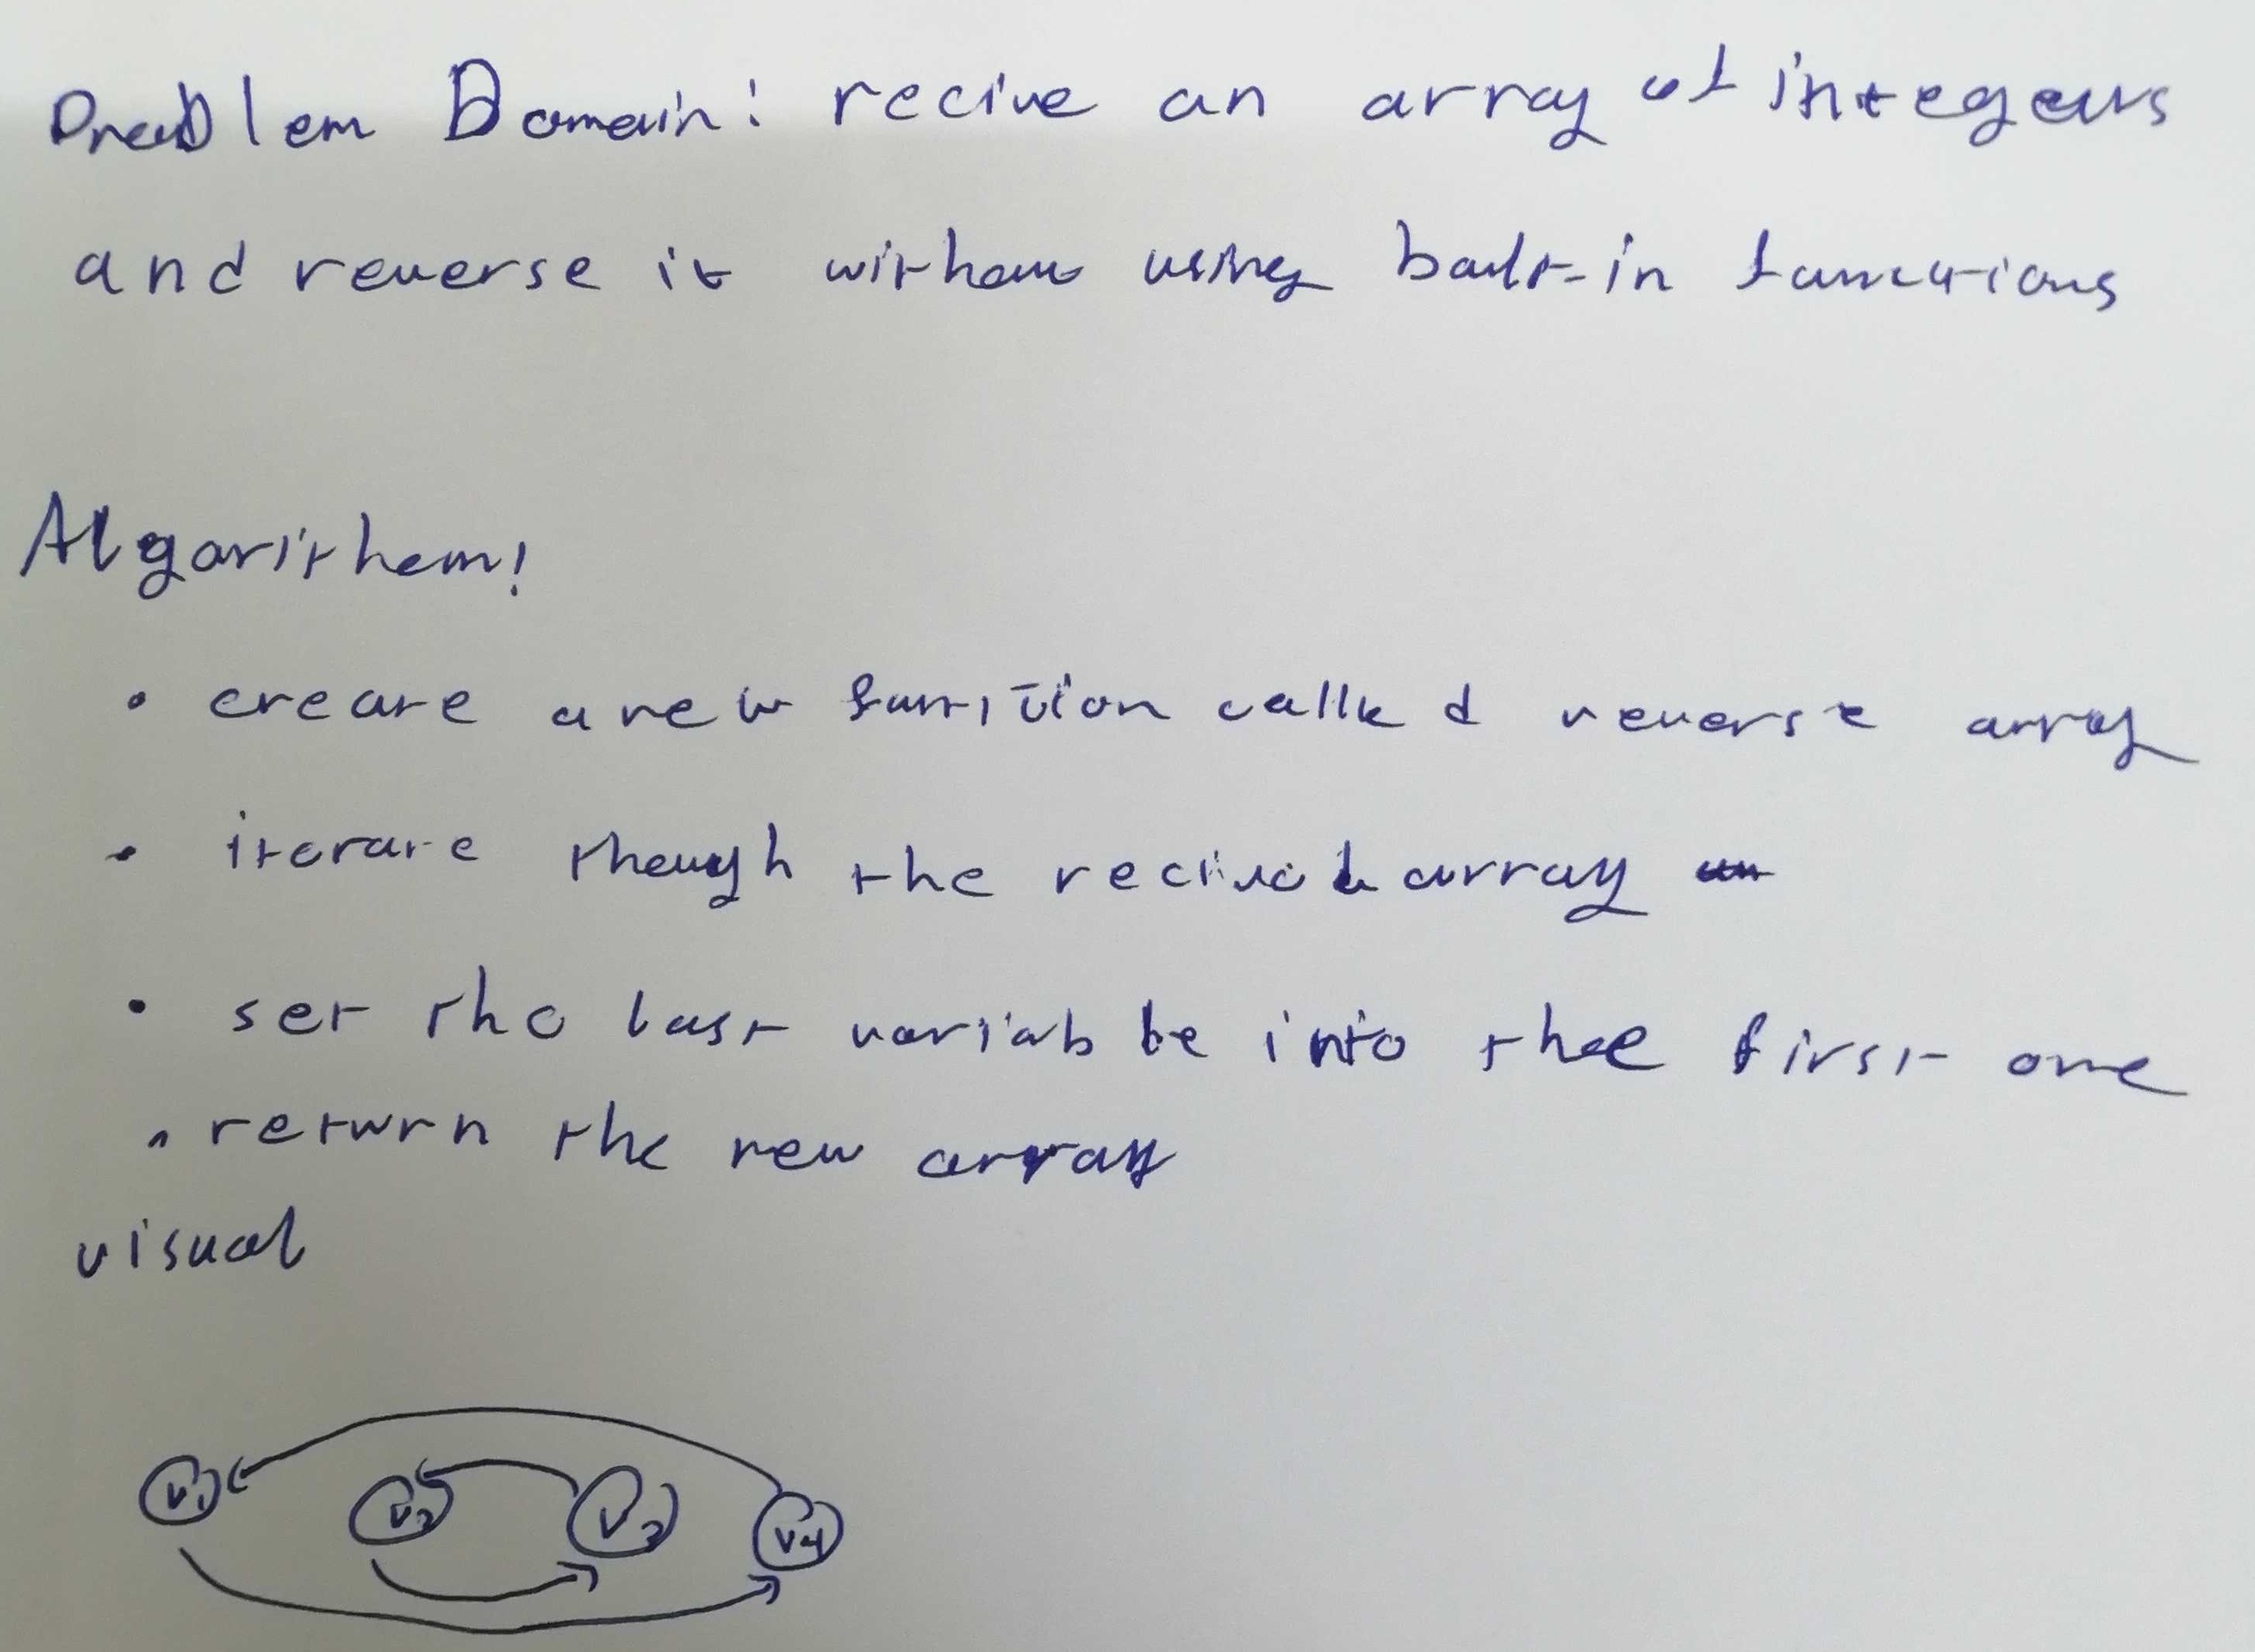 Problem Domain: recive an array of integers
and reverse it without using built-in functions
Algorithem:
• create a new function called reverse array
• iterate though the recived array
• set the last variable into the first one
• return the new array
visual
V1 V2 V3 V4